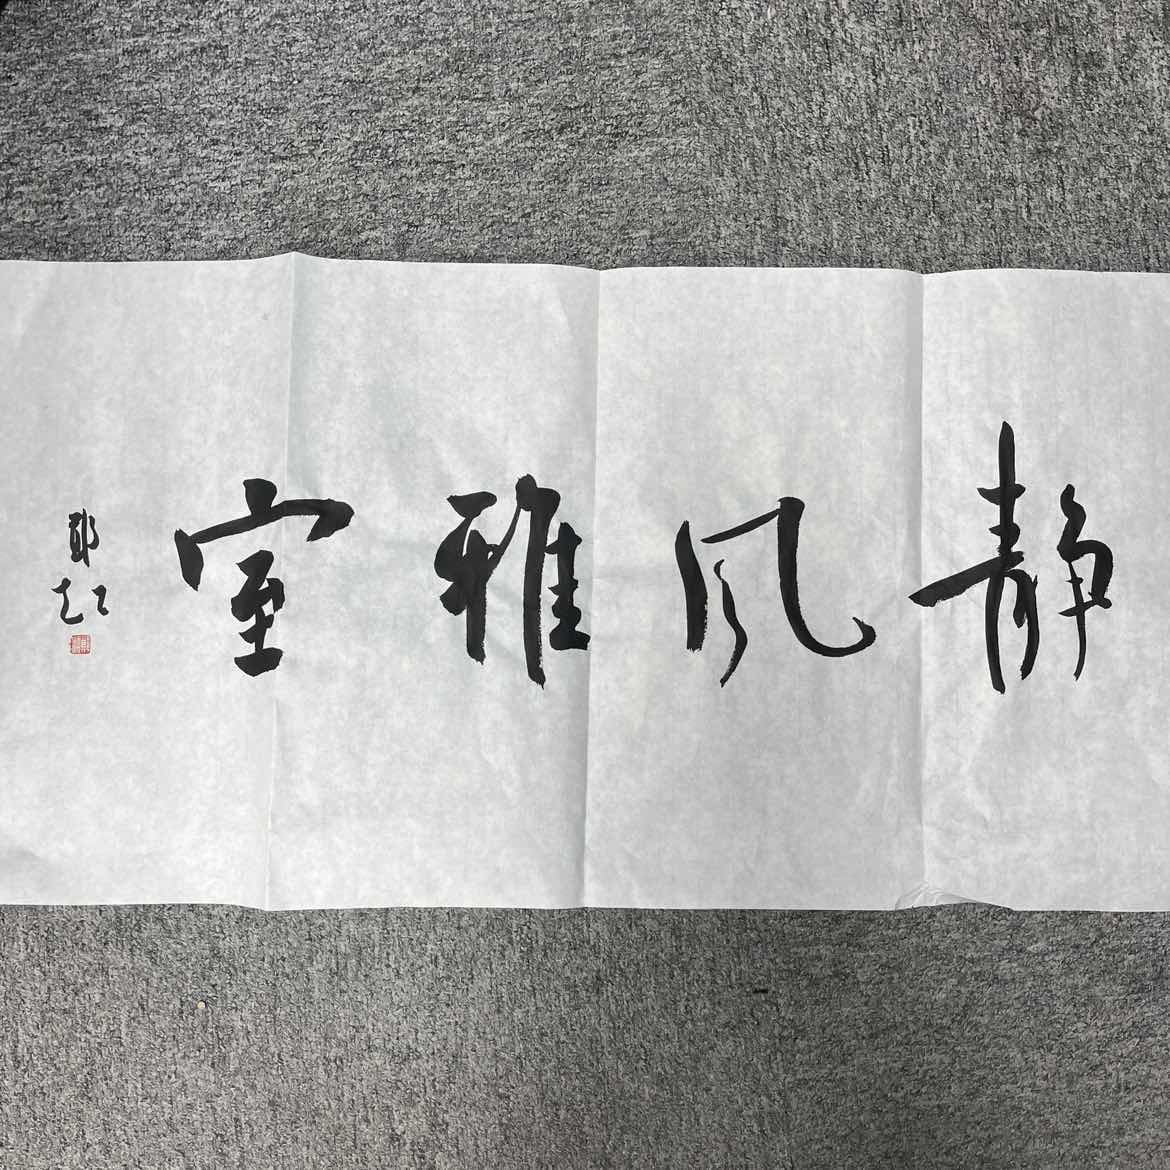 静风雅室